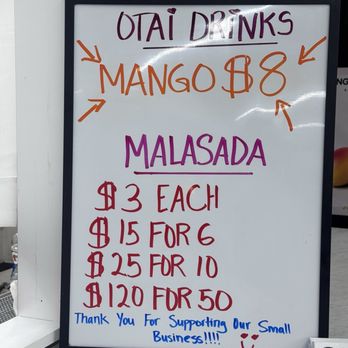 OTAI DRINKS
MANGO $8
MALASADA
$3 EACH
$15 FOR 6
$25 FOR 10
$120 FOR 50
Thank You For Supporting Our Small
Business!!!!